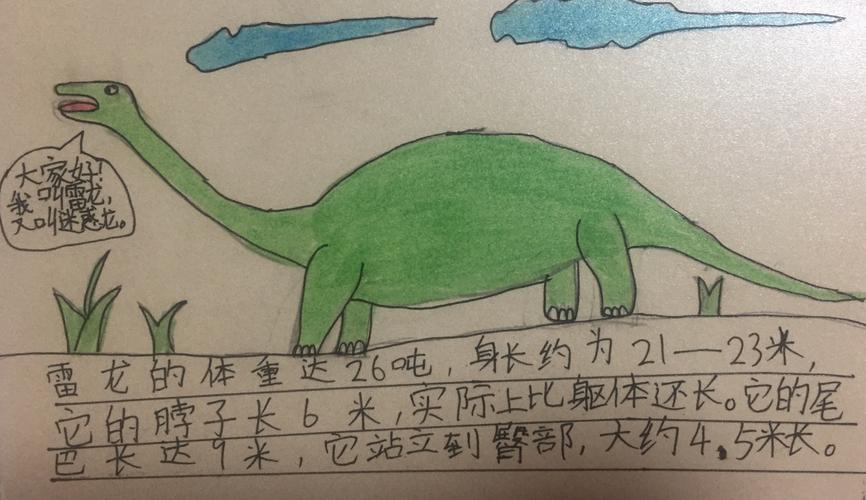 大家好!
我叫雷龙,
又叫迷惑龙。
雷龙的体重达26吨,身长约为21—23米,
它的脖子长6米,实际上比躯体还长。它的尾
巴长达9米,它站立到臀部,大约4.5米长。